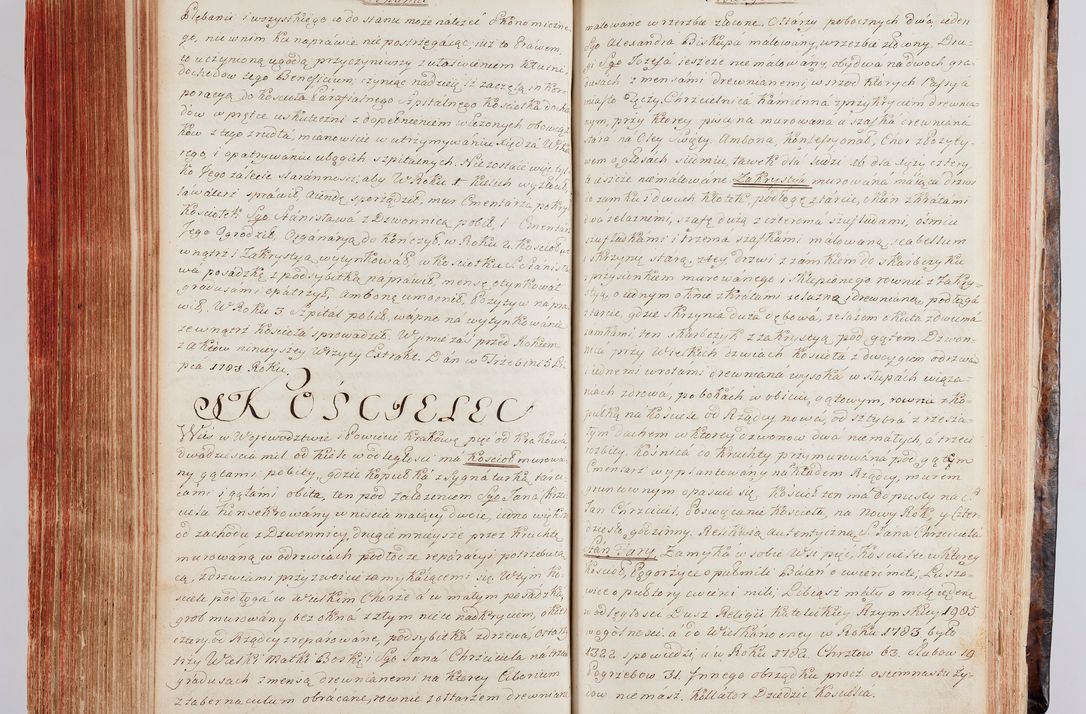 Plebanii i wszystkiego co do stanu może należeć ekonomiczne
go, nic w nim ku naprawie nie postrzegając, już to Prawem,
to uczynioną ugodą przyczyniwszy z właścicielem
dochodów tego Beneficium, czyniąc nadzieję iż zaczętą
poracyą do Kościoła Parafialnego Szpitalnego Kościołka docho
dów w prętce uskuteczni z dopełnieniem włożonych obowiąz
ków z tego źródła mianowicie w utrzymywaniu Xiędza
rego, i opatrywaniu ubogich szpitalnych. Nie zostaie więc tyl
ko Jego zalecić staranności, aby W Roku 1 kielich wyzłocił
sprawił, sporządził, mur Cmentarza pokrył
Kościołek Sgo Stanisława z Dzwonnicą pobił i Cmentarz
Jego Ogrodził, Organaryą dokończył, w Roku 2. Kościoł we
wnątrz i Zakrystyą wytynkował, w kościołku Sgo Stanisła
wa posadzkę z podsybitką naprawił, mensę otynkował
gradusami opatrzył, Ambonę umocnił, Pozytyw napra
wił, W Roku 3 Szpital pobił, wapno na wytynkowanie
zewnątrz kościoła sprowadził. Wymierzać przed Rokiem
zaktów ninieyszey Wizyty Extrakt. Dan w Trzebini 5 Li-
pca 1783 Roku.
KOŚCIELEC
Wieś w Województwie i Powiecie Krakows pięć od Krakowa
dwadzieścia mil od Kielc w odległości ma Kościoł murowa
ny gątami pobity, gdzie kopułka z Sygnaturką tarci
cami i gątami obita, ten pod założeniem Sgo Jana Chrzci
ciela Konsekrowany wniścia maiący dwoie, iedno większe
od zachodu z Dzwonnicy, drugie mnieysze przez Kruchtę
murowaną w odrzwiach podłodze reparacyi potrzebuią
cą, z drzwiami przyzwoicie zamykaiącemi się. W tym Ko-
ściele podłoga w Wielkim Chorze a w małym posadzka,
grob murowany bez okna z tym nieco nadkryciem, okien
cztery od Rządcy zreparowane, podsybitka zdrzewa, Ołtarz
trzy Wielki Matki Boskiej i Sgo Jana Chrzciciela na trzech
gradusach z mensą drewnianemi na którey Ciborium
z tabernaculum obracane, rownie z ołtarzem drewniane
malowane w rzeźbie złocone. Ołtarzy pobocznych dwa, ieden
Sgo Alexandra Biskupa malowany, w rzeźbie złocony. Dru-
gi Sgo Jozefa ieszcze nie malowany, obydwa na dwoch gra
dusach z mensami drewnianemi, wśrzod których Passyą
miasto Tęczy, Chrzcielnica kamienna z przykryciem drewnia
nym, przy ktorey piscina murowana a szafka drewniana
stara na Oley Święty. Ambona, Konfesyonał, Chor z pozyty-
wem o głosach siedmiu, ławek dla ludzi 16 dla Xięży cztery,
a ieszcze nie malowane Zakrystya murowana maiąca drzwi
do zamku i dwuch klotek, podłogę z tarcic, okien z kratami
dwa żelaznemi, szafę dużą z czterema szufladami, ośmiu
szufladkami i trzema szafkami malowaną, scabellum
i skrzynię starą, z tey drzwi z zamkiem do Skarbczyku
z przysienkiem murowanego i sklepionego rownie z Zakry-
styą, o iednym oknie z kratami żelazną i drewnianą, podłogą
z tarcic, gdzie skrzynia duża dębowa, żelazem okuta z dwuma
zamkami, ten skarbczyk z Zakrystyą pod gątem. Dzwon-
nica przy Wielkich drzwiach kościoła z dwoygiem odrzwi
i iednemi wrotami drewniana wysoka w słupach wiąza-
niach zdrowa, po bokach w obiciu gątowym, rownie z Ko-
pułką na kościele od Rządcy nowa, od sztybra z resza-
tym dachem w ktorey dzwonow dwa nie małych, a trzeci
rozbity. Kośnica co kruchty przymurowana pod gątem
Cmentarz wyplantowany nakładem Rządcy, murem
gruntownym opasuie się Kościoł ten ma Odpusty na S.
Jan Chrzciciel, Poświącanie Kościoła, na Nowy Rok, y Czter
dziesto godzinny. Reliquia autentyczną S. Jana Chrzciciela
Stan Fary. Zamyka w sobie Wsi pięć, Kościelec w ktorey
Kościoł, Pogorzyce o puł mili Balin o ćwierć mili, Lusz-
wice o pułtory ćwierci mili, Libiąż mały o milę iedną
w odległości Dusz Religii Katolickiey Rzymskiey 1985
w ogólności. a do Wielkanocney w Roku 1783 było
1322 spowiedzi, a w Roku 1782. Chrztow 63. Slubow 19
Pogrzebow 31. Innego obrządku procz osiemnastu ży-
dow nie masz. Kollator Dziedzic Kościelca.